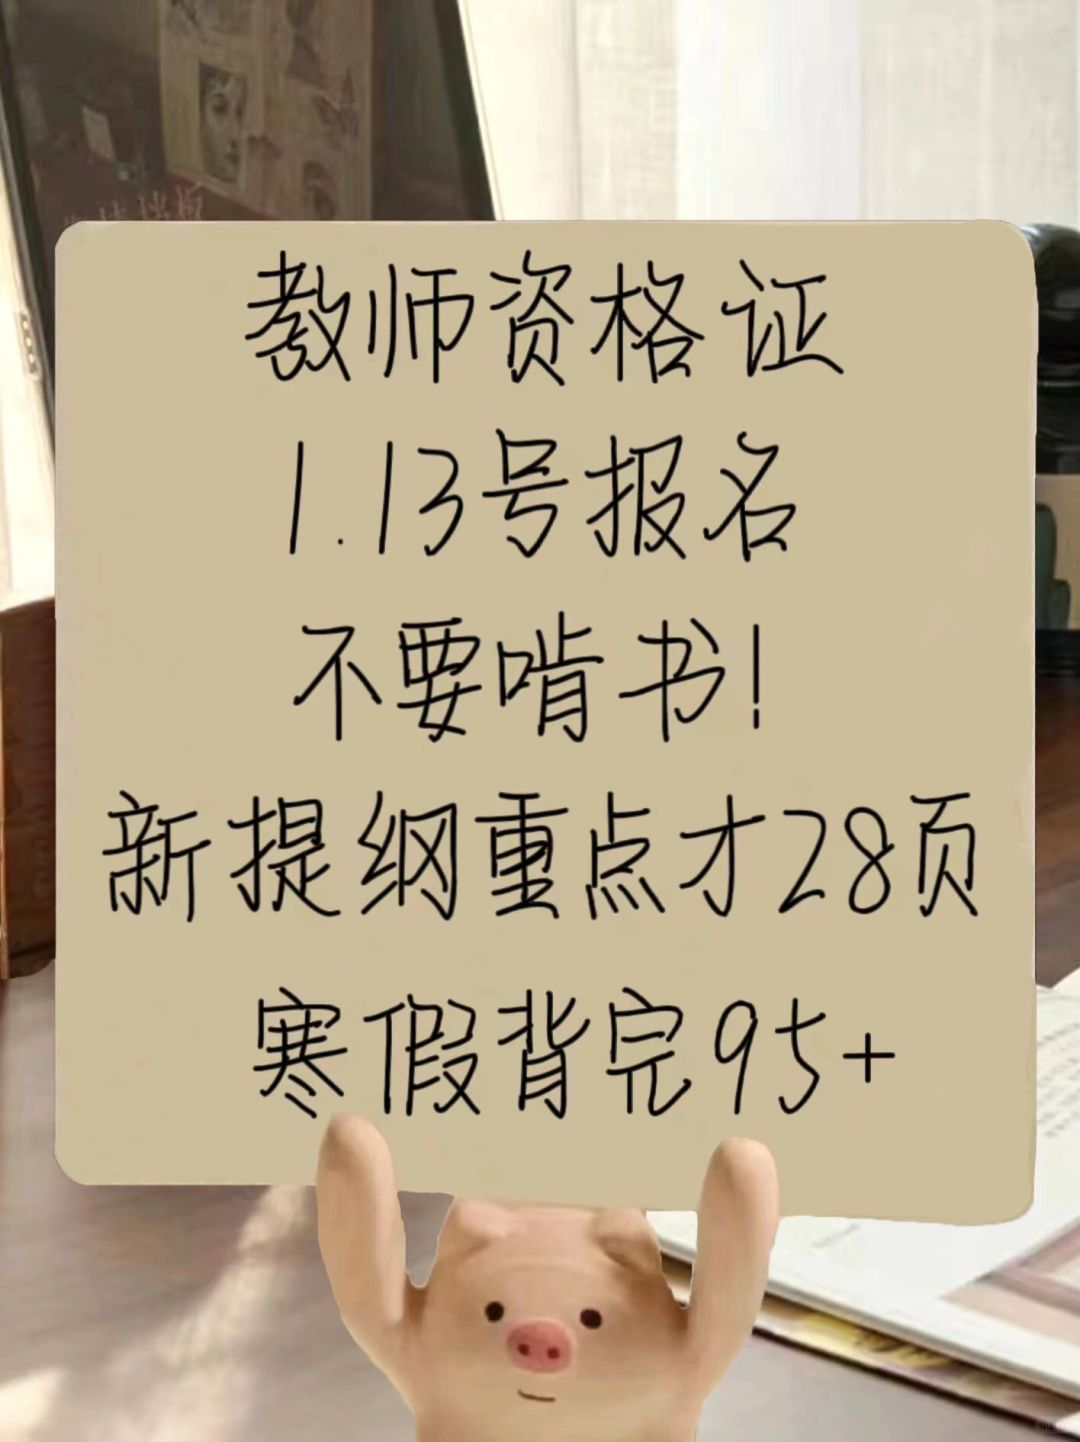 教师资格证
1.13号报名
不要啃书!
新提纲重点才28页
寒假背完95+